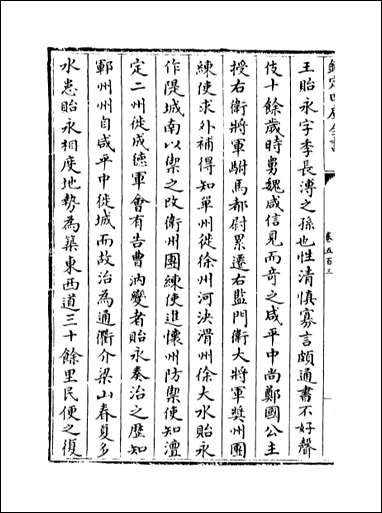 欽定四庫全書
卷五百三
王貽永字季長溥之孫也性清慎寡言頗通書不好聲
伎十餘歲時舅魏咸信見而奇之咸平中尚鄭國公主
授右衛將軍駙馬都尉累遷右監門衛大將軍獎州團
練使求外補得知單州徙徐州河決滑州徐大水貽永
作隄城南以禦之改衛州團練使進懷州防禦使知澶
定二州徙成德軍會有告曹汭變者貽永奏治之歷知
鄆州州自咸平中徙城而故治為通衢介梁山春夏多
水患貽永相度地勢為築東西道三十餘里民便之復